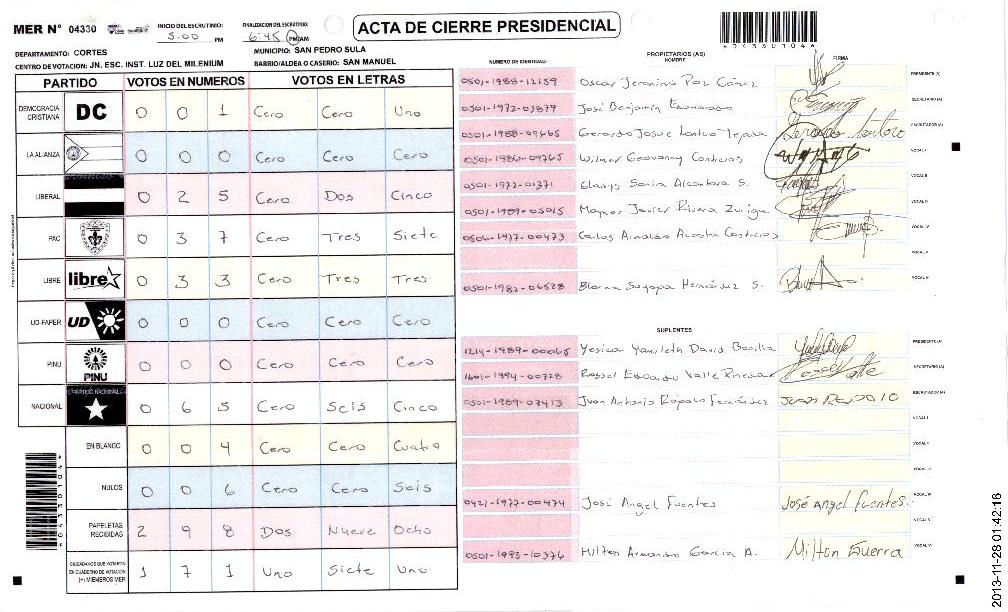 MER N° 04330
INICIO DEL ESCRUTINIO: 5:00 PM
FINALIZACION DEL ESCRUTINIO: 6:45 PM/AM
ACTA DE CIERRE PRESIDENCIAL
DEPARTAMENTO: CORTES
MUNICIPIO: SAN PEDRO SULA
CENTRO DE VOTACION: JN. ESC. INST. LUZ DEL MILENIUM
BARRIO/ALDEA O CASERIO: SAN MANUEL
PARTIDO VOTOS EN NUMEROS VOTOS EN LETRAS
DEMOCRACIA CRISTIANA DC 0 0 1 Cero Cero Uno
LA ALIANZA 0 0 0 Cero Cero Cero
LIBERAL 0 2 5 Cero Dos Cinco
PAC 0 3 7 Cero Tres Siete
LIBRE libre 0 3 3 Cero Tres Tres
UD-FAPER UD 0 0 0 Cero Cero Cero
PINU PINU 0 0 0 Cero Cero Cero
NACIONAL 0 6 5 Cero Seis Cinco
EN BLANCO 0 0 4 Cero Cero Cuatro
NULOS 0 0 6 Cero Cero Seis
PAPELETAS RECIBIDAS 2 9 8 Dos Nueve Ocho
CIUDADANOS QUE VOTARON EN CUADERNO DE VOTACION (+) MIEMBROS MER 1 7 1 Uno Siete Uno
NUMERO DE IDENTIDAD
PROPIETARIOS (AS)
NOMBRE
FIRMA
0501-1988-12159 Oscar Jeronimo Paz Gómez PRESIDENTE (A)
0501-1972-03879 José Benjamin SECRETARIO (A)
0501-1988-09665 Gerardo Josue ESCRUTADOR (A)
0501-1986-09765 Wilmer Geovanny Contreras VOCAL I
0501-1972-01371 Gladys Sonia Alcantara S. VOCAL II
0501-1989-05015 Maynor Javier Rivera Zuniga VOCAL III
0506-1977-00473 Carlos Arnaldo Acosta Contreras VOCAL IV
VOCAL V
0501-1982-06528 Blanca Suyapa Hernández S. VOCAL VI
SUPLENTES
1214-1989-00065 Yesica Yamileth David Bonilla PRESIDENTE (A)
1601-1994-00728 Rossel Edgardo Valle SECRETARIO (A)
0501-1989-07413 Juan Antonio Rapalo Fernández ESCRUTADOR (A)
VOCAL I
VOCAL II
VOCAL III
0421-1977-00474 José Angel Fuentes José Angel Fuentes. VOCAL IV
VOCAL V
0501-1993-10376 Milton Armando Garcia A. Milton Guerra VOCAL VI
2013-11-28 01:42:16